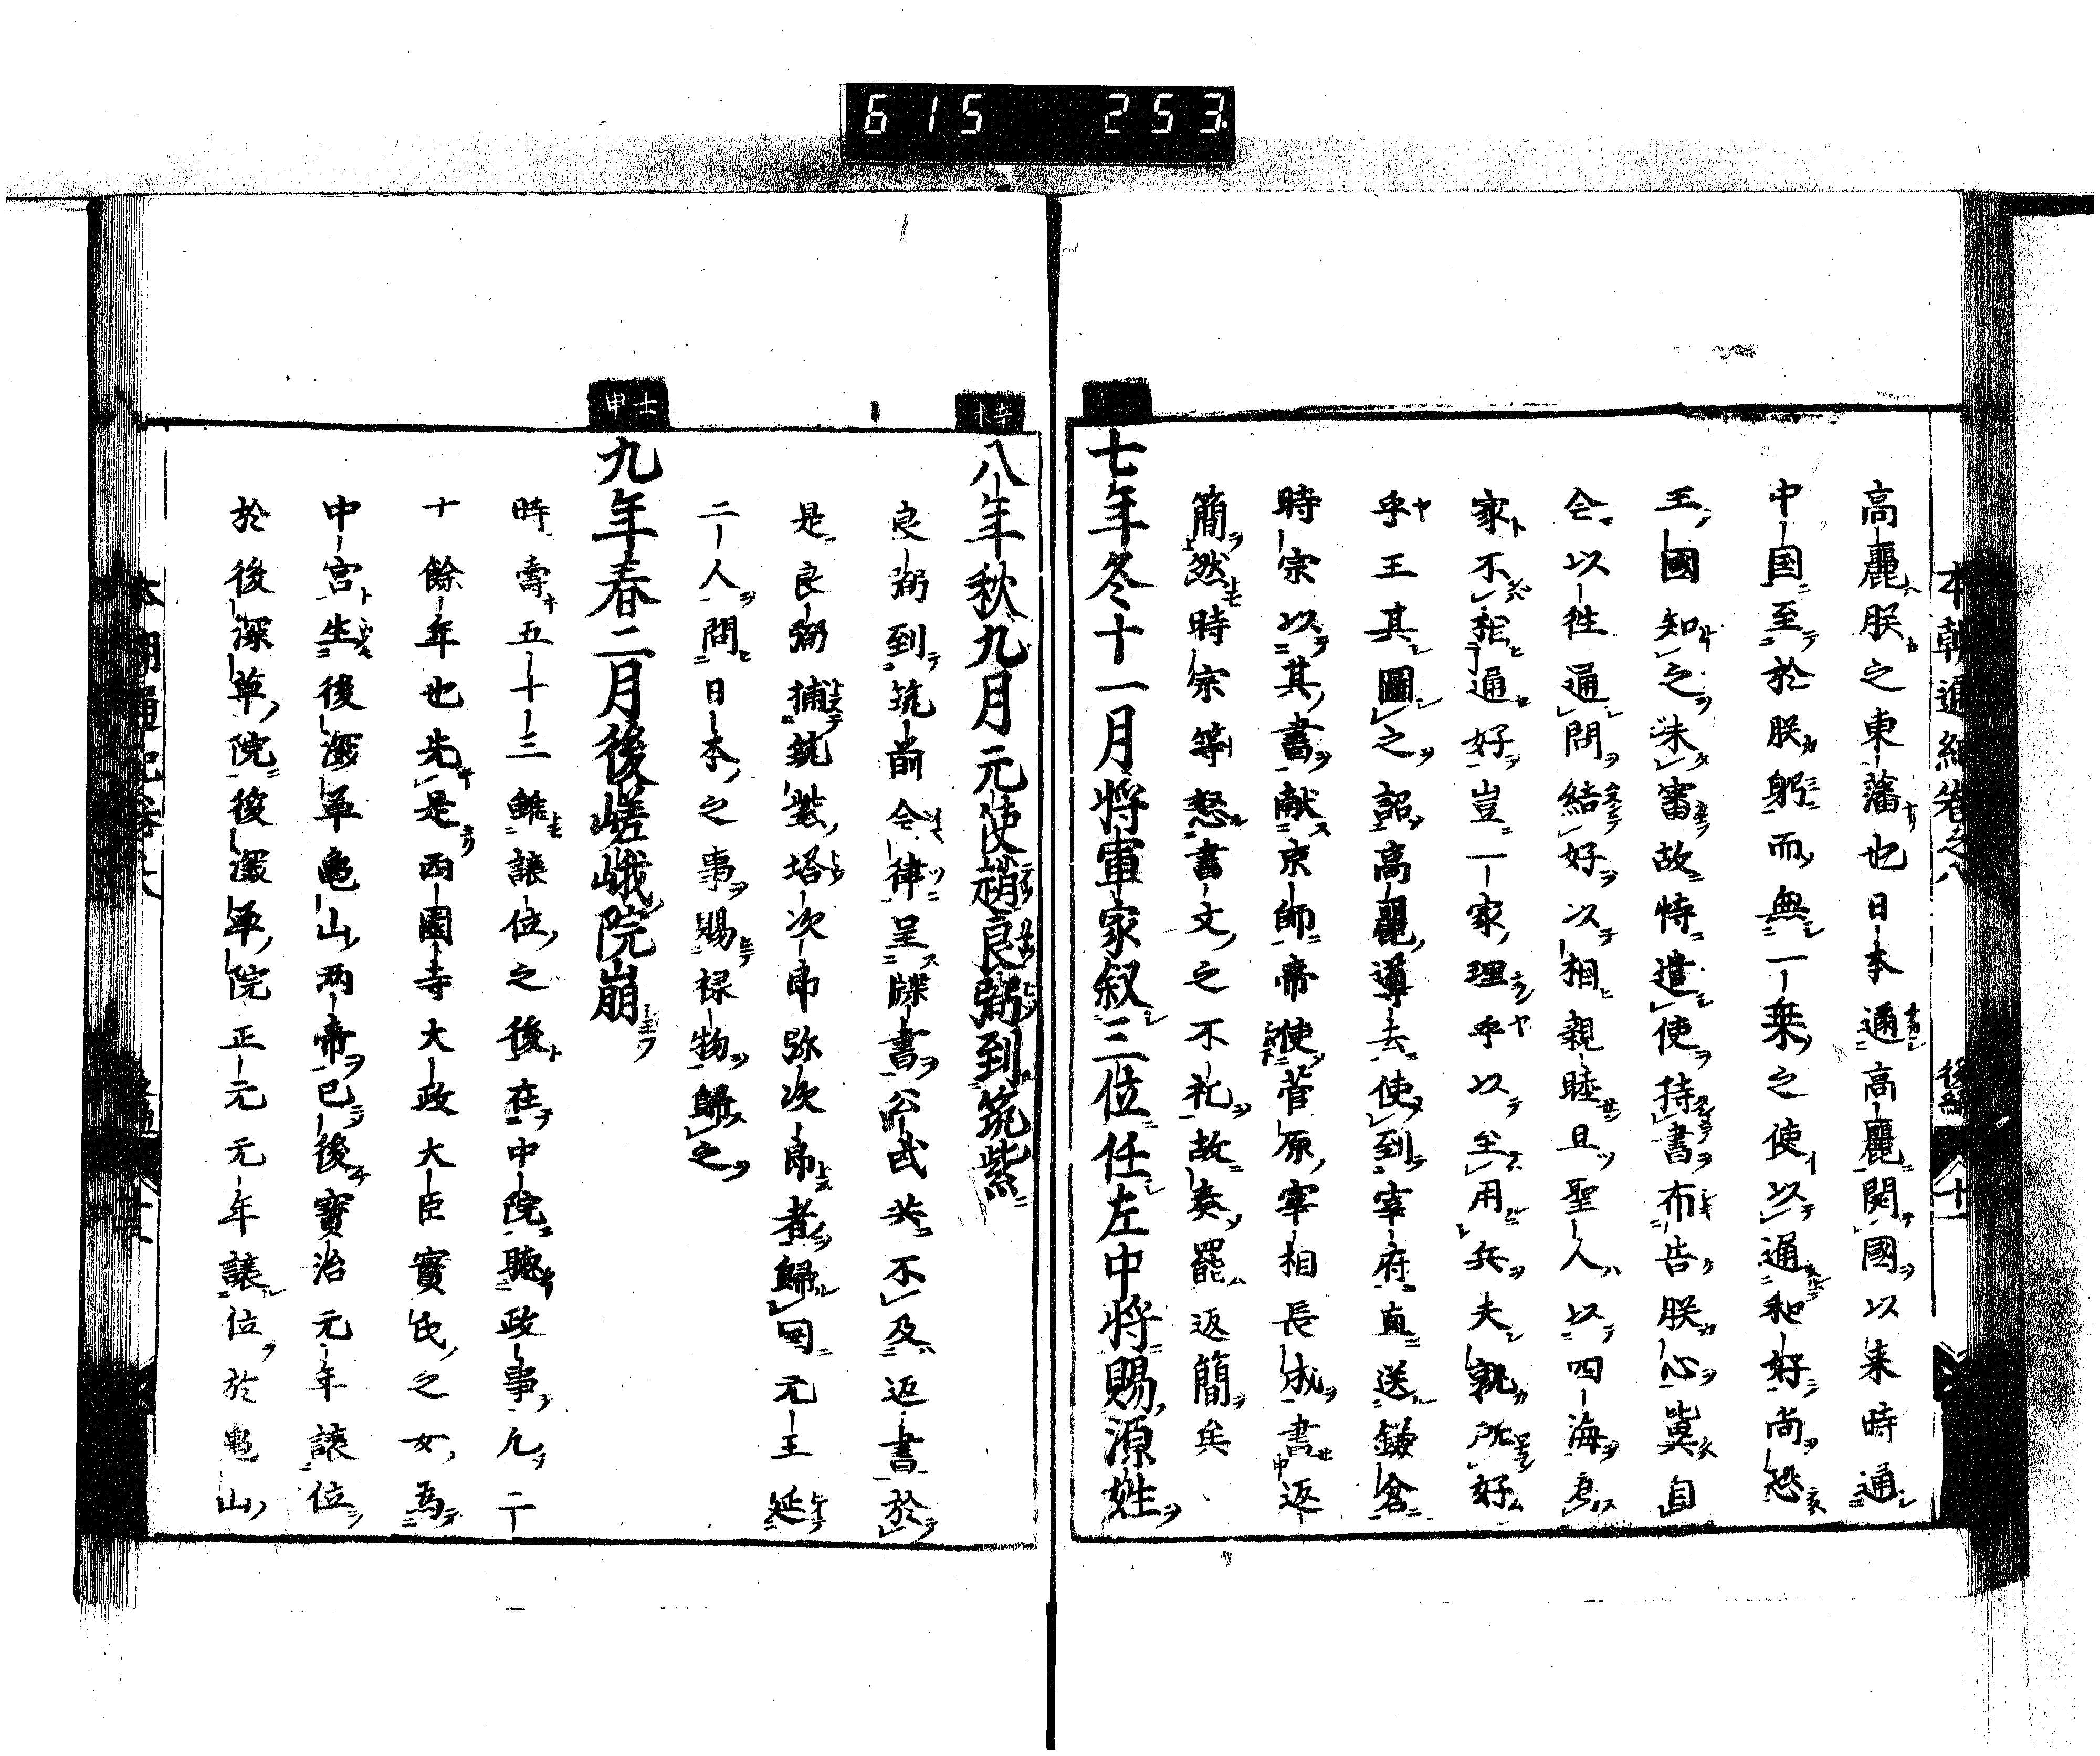 615 253
本朝通紀卷之八 後編 十一
高麗朕之東藩也日本通高麗開國以来時通
中国至於朕躬而無一乗之使以通和好尚恐
王國知之未審故特遣使持書布告朕心冀自
今以往通問結好以相親睦且聖人以四海為
家不相通好豈一家理乎以至用兵夫孰所好
乎王其圖之詔高麗導去使到宰府直送鎌倉
時宗以其書献京師帝使菅原宰相長成書返
簡然時宗等怒書文之不礼故奏罷返簡矣
七年冬十一月将軍家叙三位任左中将賜源姓
八年秋九月元使趙良弼到筑紫
良弼到筑前今津呈牒書公武共不及返書於
是良弼捕筑紫塔次郎弥次郎者歸囘元王延
二人問日本之事賜禄物歸之
壬申
九年春二月後嵯峨院崩
時壽五十三雖譲位之後在中院聴政事凡二
十餘年也先是西園寺大政大臣實氏之女為
中宮生後深草亀山两帝已後寳治元年譲位
於後深草院後深草院正元元年譲位於亀山